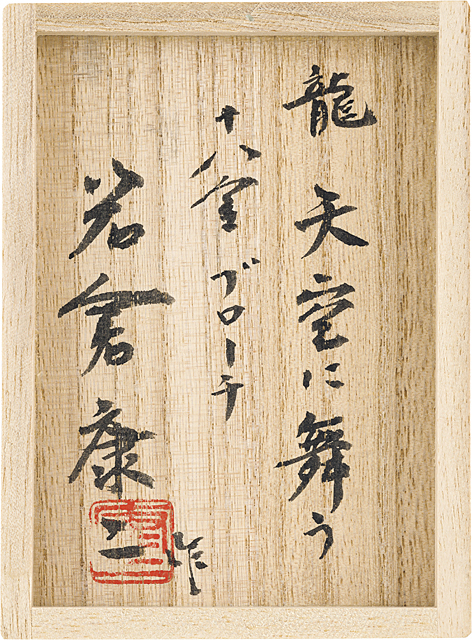 龍 天空に舞う
十八金 ブローチ
岩倉康二 作